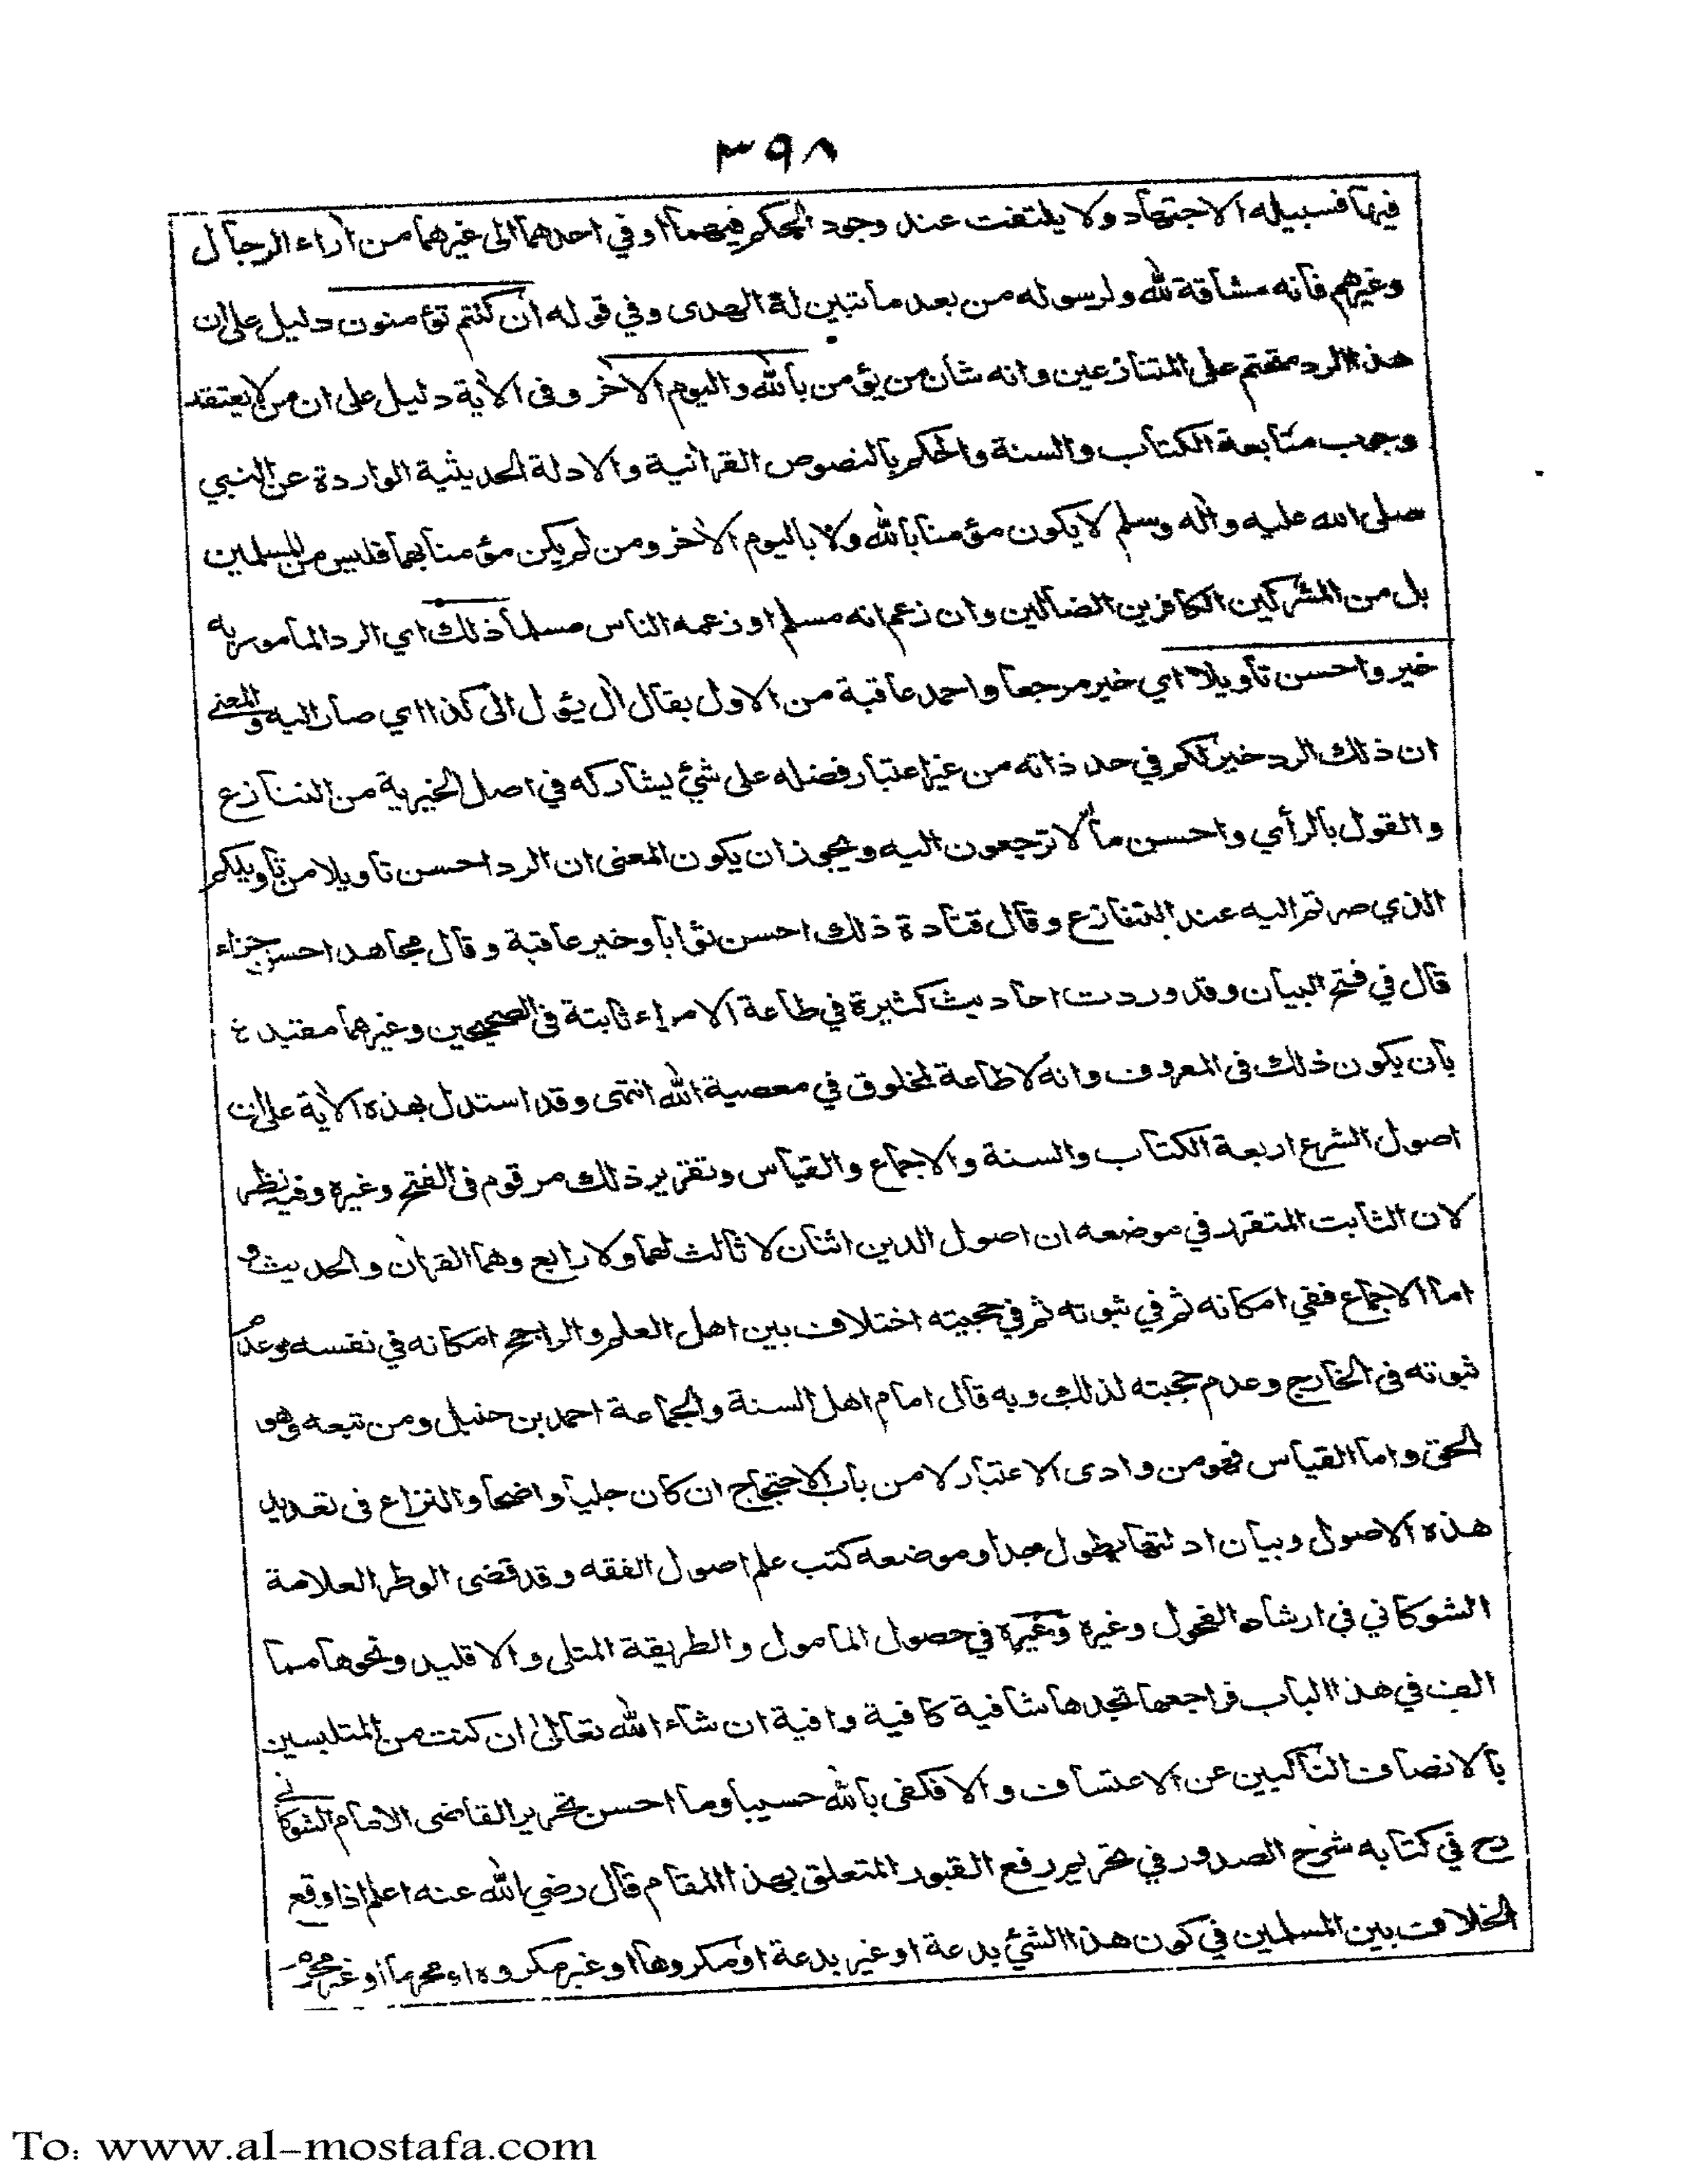 ٣٩٨
فيهما فسبيله الاجتهاد ولا يلتفت عند وجود الحكم فيهما او في احدهما الى غيرهما من آراء الرجال
وغيرهم فانه مشاقة لله ولرسوله من بعد ما تبين له الهدى وفي قوله ان كنتم تؤمنون دليل على ان
هذا الرد متحتم على المتنازعين وانه شان من يؤمن بالله واليوم الآخر وفى الآية دليل على ان من لا يعتقد
وجوب متابعة الكتاب والسنة والحكم بالنصوص القرآنية والادلة الحديثية الواردة عن النبي
صلى الله عليه وآله وسلم لا يكون مؤمنا بالله ولا باليوم الآخر ومن لم يكن مؤمنا بهما فليس من المسلمين
بل من المشركين الكافرين الضالين وان زعم انه مسلم او زعمه الناس مسلما ذلك اي الرد المأمور به
خير واحسن تأويلا اي خير مرجعا واحمد عاقبة من الاول يقال آل يئول الى كذا اي صار اليه والمعنى
ان ذلك الرد خير لكم في حد ذاته من غير اعتبار فضله على شيء يشاركه في اصل الخيرية من التنازع
والقول بالرأي واحسن مآلا ترجعون اليه ويجوز ان يكون المعنى ان الرد احسن تأويلا من تأويلكم
الذي صرتم اليه عند التنازع وقال قتادة ذلك احسن ثوابا وخير عاقبة وقال مجاهد احسن جزاء
قال في فتح البيان وقد وردت احاديث كثيرة في طاعة الامراء ثابتة فى الصحيحين وغيرهما مقيدة
بان يكون ذلك فى المعروف وانه لا طاعة لمخلوق في معصية الله انتهى وقد استدل بهذه الآية على ان
اصول الشرع اربعة الكتاب والسنة والاجماع والقياس وتقرير ذلك مرقوم فى الفتح وغيره وفيه نظر
لان الثابت المتقرر في موضعه ان اصول الدين اثنان لا ثالث لهما ولا رابع وهما القرآن والحديث و
اما الاجماع ففي امكانه ثم في ثبوته ثم في حجيته اختلاف بين اهل العلم والراجح امكانه في نفسه وعدم
ثبوته فى الخارج وعدم حجيته لذلك وبه قال امام اهل السنة والجماعة احمد بن حنبل ومن تبعه وهو
الحق واما القياس فهو من وادى الاعتبار لا من باب الاحتجاج ان كان جليا واضحا والنزاع فى تعديد
هذه الاصول وبيان ادلتها يطول جدا وموضعه كتب علم اصول الفقه وقد قضى الوطر العلامة
الشوكاني في ارشاد الفحول وغيره وغيره في حصول المأمول والطريقة المثلى والاقليد ونحوها مما
الف في هذا الباب فراجعها تجدها شافية كافية وافية ان شاء الله تعالى ان كنت من المتلبسين
بالانصاف الناكبين عن الاعتساف والا فكفى بالله حسيبا وما احسن تحرير القاضى الامام الشوكاني
رح في كتابه شرح الصدور في تحريم رفع القبور المتعلق بهذا المقام قال رضي الله عنه اعلم اذا وقع
الخلاف بين المسلمين في كون هذا الشيء بدعة او غير بدعة او مكروها او غير مكروه او محرما او غير محرم
To: www.al-mostafa.com